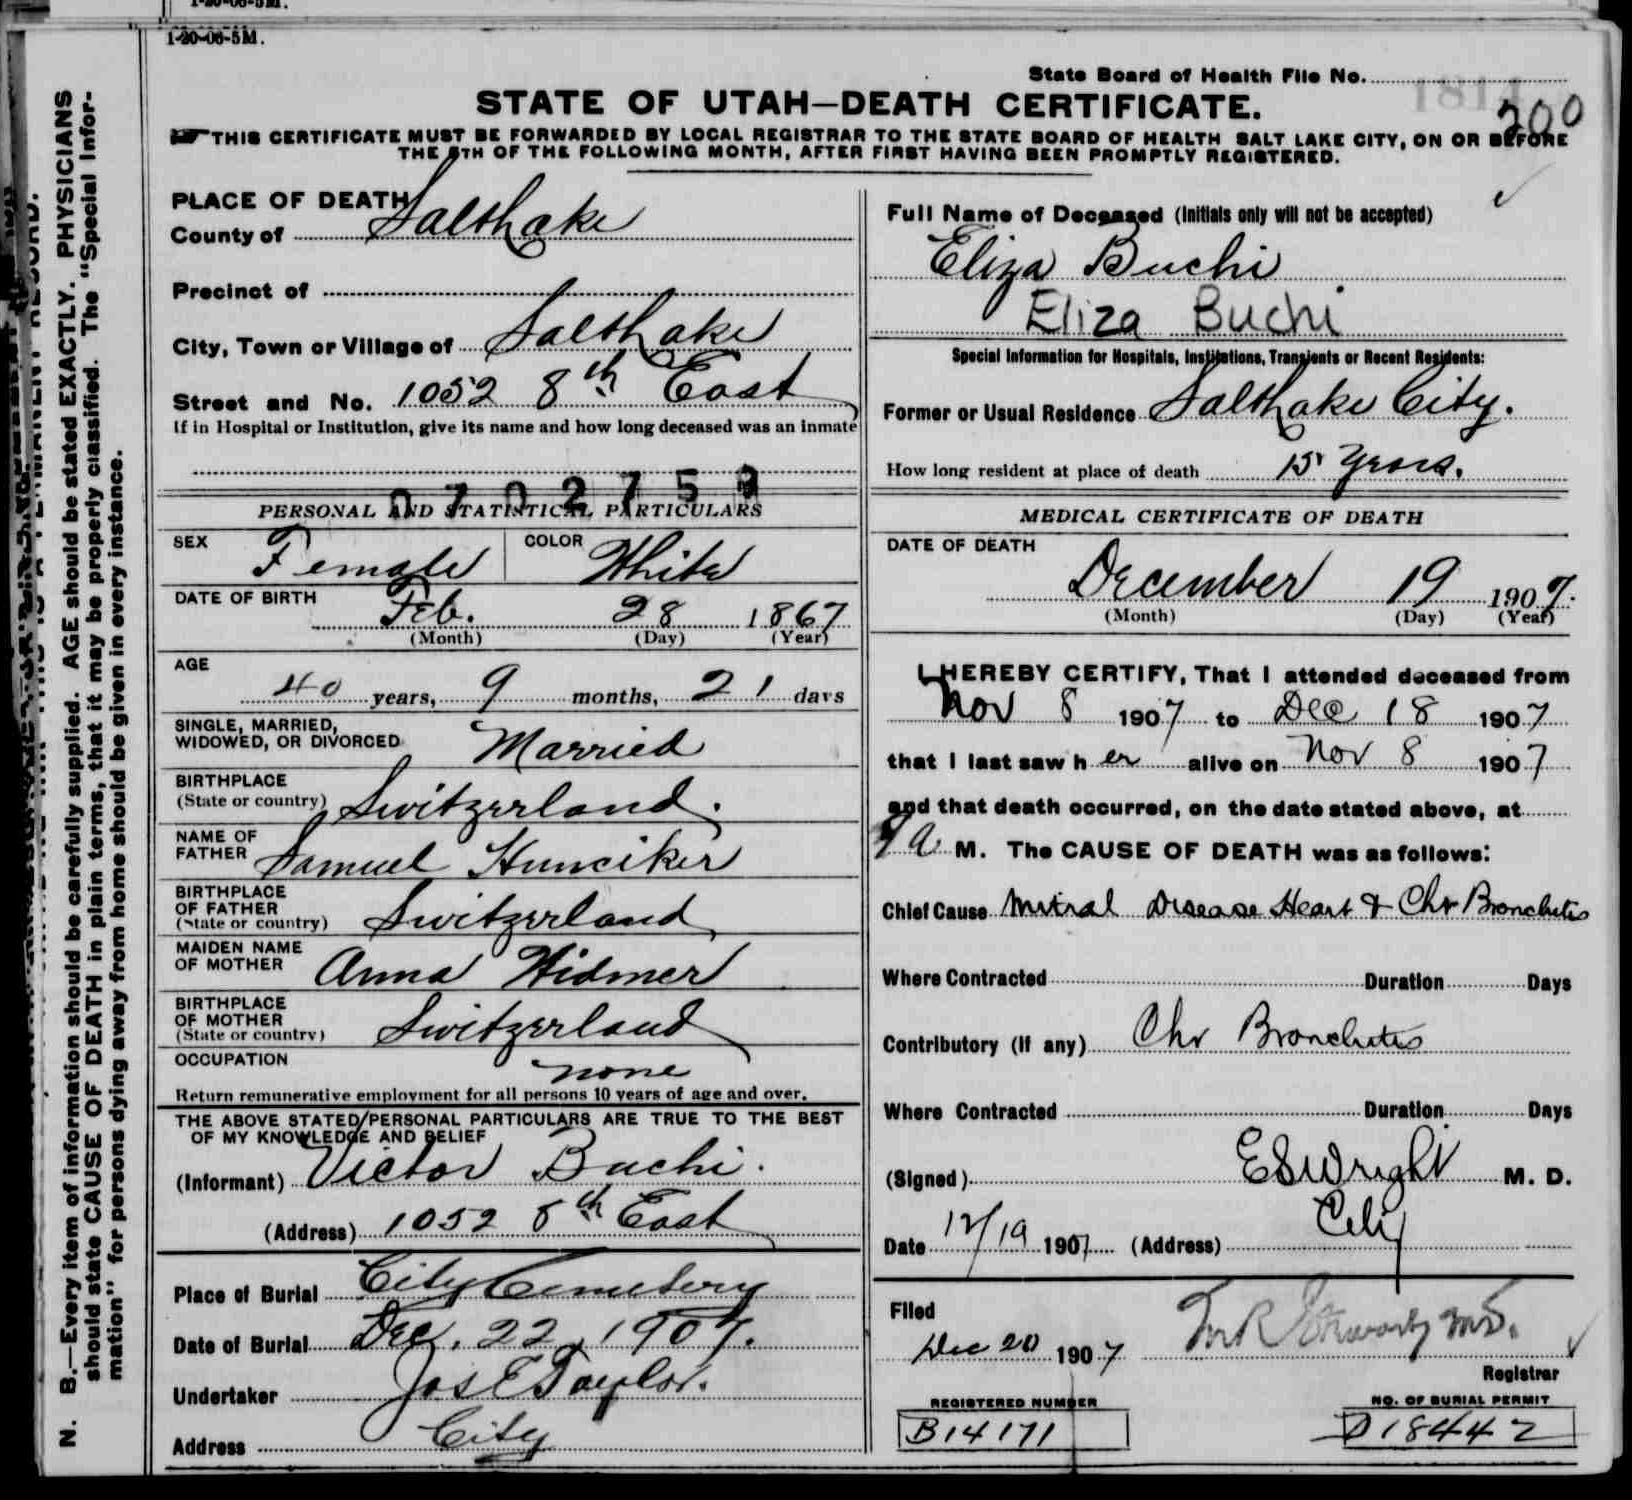 1-20-06-5M.
1-20-06-5M.
State Board of Health File No.
1814
200
STATE OF UTAH—DEATH CERTIFICATE.
THIS CERTIFICATE MUST BE FORWARDED BY LOCAL REGISTRAR TO THE STATE BOARD OF HEALTH SALT LAKE CITY, ON OR BEFORE
THE 5TH OF THE FOLLOWING MONTH, AFTER FIRST HAVING BEEN PROMPTLY REGISTERED.
N. B.—Every item of information should be carefully supplied. AGE should be stated EXACTLY. PHYSICIANS
should state CAUSE OF DEATH in plain terms, that it may be properly classified. The "Special Infor-
mation" for persons dying away from home should be given in every instance.
PLACE OF DEATH
County of Salt Lake
Precinct of
City, Town or Village of Salt Lake
Street and No. 1052 8th East
If in Hospital or Institution, give its name and how long deceased was an inmate
0702753
PERSONAL AND STATISTICAL PARTICULARS
SEX Female COLOR White
DATE OF BIRTH Feb. 28 1867
(Month) (Day) (Year)
AGE
40 years, 9 months, 21 days
SINGLE, MARRIED,
WIDOWED, OR DIVORCED Married
BIRTHPLACE
(State or country) Switzerland.
NAME OF
FATHER Samuel Hunciker
BIRTHPLACE
OF FATHER
(State or country) Switzerland
MAIDEN NAME
OF MOTHER Anna Widmer
BIRTHPLACE
OF MOTHER
(State or country) Switzerland
OCCUPATION none
Return remunerative employment for all persons 10 years of age and over.
THE ABOVE STATED PERSONAL PARTICULARS ARE TRUE TO THE BEST
OF MY KNOWLEDGE AND BELIEF
(Informant) Victor Buchi.
(Address) 1052 8th East
Place of Burial City Cemetery
Date of Burial Dec. 22, 1907.
Undertaker Jos E Taylor.
Address City
Full Name of Deceased (Initials only will not be accepted)
Eliza Buchi
Eliza Buchi
Special Information for Hospitals, Institutions, Transients or Recent Residents:
Former or Usual Residence Salt Lake City.
How long resident at place of death 15 years.
MEDICAL CERTIFICATE OF DEATH
DATE OF DEATH
December 19 1907.
(Month) (Day) (Year)
I HEREBY CERTIFY, That I attended deceased from
Nov 8 1907 to Dec 18 1907
that I last saw her alive on Nov 8 1907
and that death occurred, on the date stated above, at
a M. The CAUSE OF DEATH was as follows:
Chief Cause Mitral Disease Heart & Chr Bronchitis
Where Contracted Duration Days
Contributory (If any) Chr Bronchitis
Where Contracted Duration Days
(Signed) E S Wright M. D.
Date 12/19 1907 (Address) City
Filed
Dec 20 1907
Registrar
REGISTERED NUMBER
B14171
NO. OF BURIAL PERMIT
D18442